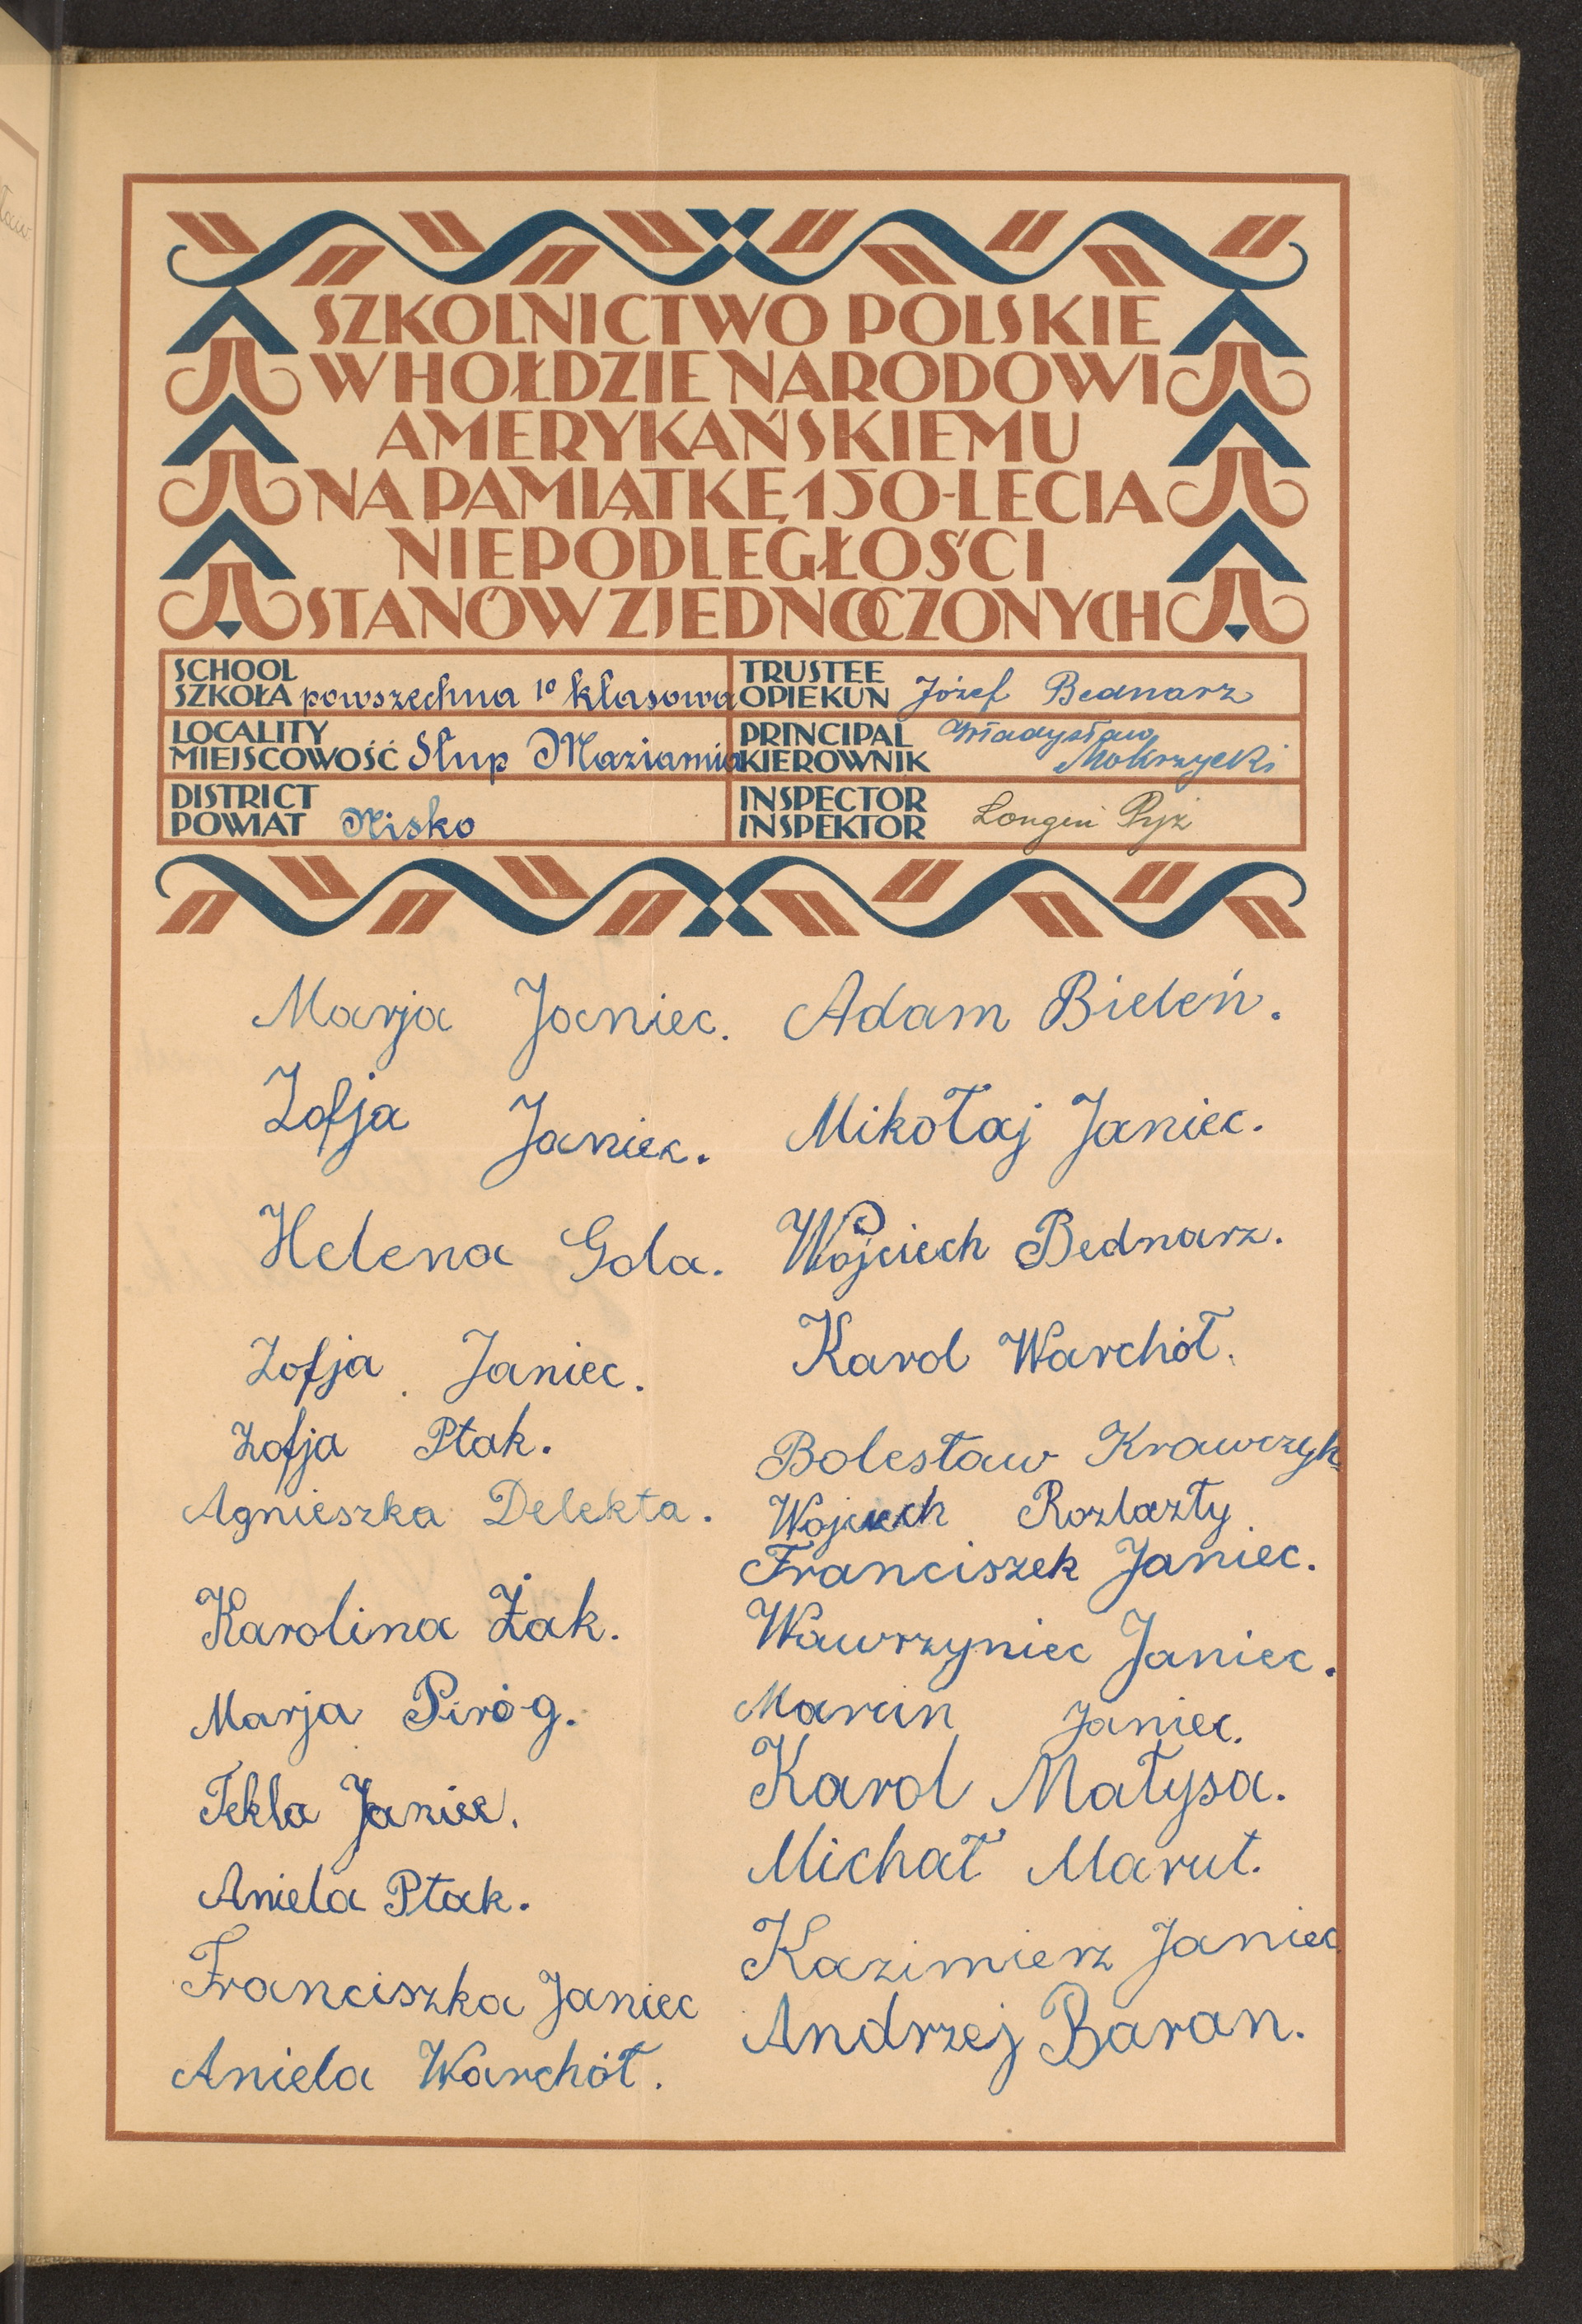 SZKOLNICTWO POLSKIE
W HOŁDZIE NARODOWI
AMERYKAŃSKIEMU
NA PAMIĄTKĘ 150-LECIA
NIEPODLEGŁOŚCI
STANÓW ZJEDNOCZONYCH
SCHOOL
SZKOŁA powszechna 1º klasowa
LOCALITY
MIEJSCOWOŚĆ Słup Maziarnia
DISTRICT
POWIAT Nisko
TRUSTEE
OPIEKUN Józef Bednarz
PRINCIPAL Władysław
KIEROWNIK Mokrzycki
INSPECTOR
INSPEKTOR Longin Pyż
Marja Janiec.
Zofja Janiec.
Helena Gola.
Zofja Janiec.
Zofja Ptak.
Agnieszka Delekta.
Karolina Żak.
Marja Piróg.
Tekla Janiec.
Aniela Ptak.
Franciszka Janiec
Aniela Warchół.
Adam Bieleń.
Mikołaj Janiec.
Wojciech Bednarz.
Karol Warchół.
Bolesław Krawczyk
Wojciech Rozlazły
Franciszek Janiec.
Wawrzyniec Janiec.
Marcin Janiec.
Karol Małysa.
Michał Marut.
Kazimierz Janiec
Andrzej Baran.